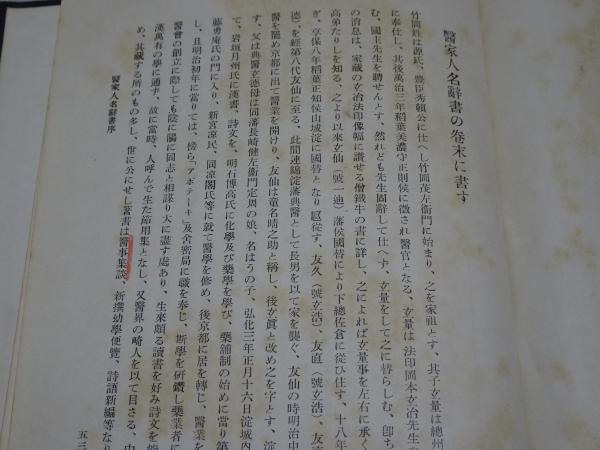 醫家人名辭書の卷末に書す
竹岡姓は源氏、豊臣秀頼公に仕へし竹岡茂左衞門に始まり、之を家祖とす、其子玄量は總州
に奉仕し、其後萬治三年稻葉美濃守正則侯に徴され醫官となる、玄量は法印岡本玄冶先生
む、國主先生を聘せんとす、然れども先生固辭して仕へず、玄量をして之に替らしむ、卽ち
の消息は、家藏の玄冶法印像幅に讃せる僧鐵牛の書に詳し、之によれば玄量事を左右に承く
高弟たりしを知る、之より以來玄仙（號一迪）藩侯國替により下總佐倉に從ひ仕す、十八年
ぎ、享保八年稻葉正知侯山城淀に國替となり扈從す、友久（號立浩）、友直（號立浩）、友
德）、を經第八代友仙に至る、此間連綿淀藩典醫として長男を以て家を襲ぐ、友仙の時明治中
醫を罷め京都に出て醫業を開けり、友仙は童名晴之助と稱し、後玄眞と改め之を字とす、淀
す、父は典醫立德母は同藩長崎健左衞門定周の娘、名はうの子、弘化三年正月十六日淀城內
て、岩垣月洲氏に漢書、詩文を、明石博高氏に化學及び藥學を學び、藥舖制の始めに當り第
藤勇庵氏の門に入り、新宮凉民、同凉閣氏等に就て醫學を修め、後京都に居を轉じ、醫業を
し、且明治初年に當りては、傍ら「アポテーキ」及舍密局に職を奉じ、斯學を硏鑽し藥業者に
醫會の創立に際しても陰に陽に同志と相謀り大に盡す處あり、生來頗る讀書を好み詩文を能
漢萬有の學に通ず、故に當時、人呼んで生た節用集となし、又醫界の畸人を以て目さる、中
め、其藏する所のもの多し、世に公にせし著書は醫事集談、新撰幼學便覽、詩語新編等なり
醫家人名辭書序
五三